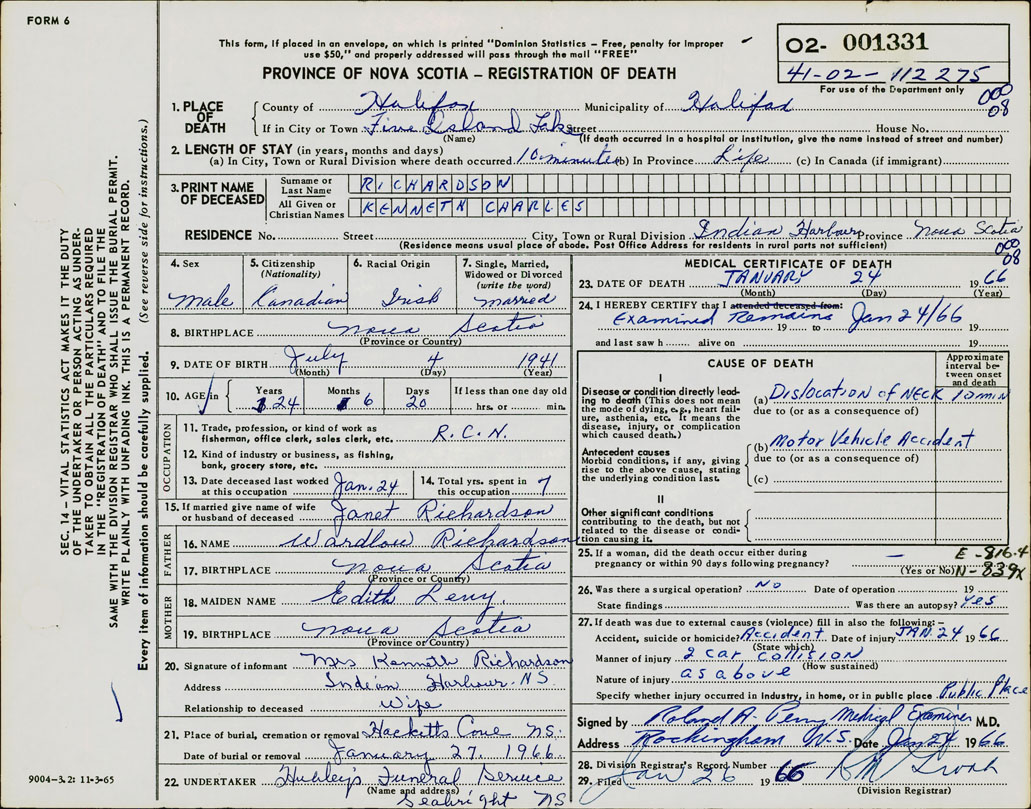 FORM 6
This form, if placed in an envelope, on which is printed "Dominion Statistics – Free, penalty for improper
use $50," and properly addressed will pass through the mail "FREE"
O2- 001331
41-02-112275
For use of the Department only
PROVINCE OF NOVA SCOTIA – REGISTRATION OF DEATH
000
08
1. PLACE OF DEATH
County of Halifax Municipality of Halifax
If in City or Town Five Island Lake Street House No.
(Name) (If death occurred in a hospital or institution, give the name instead of street and number)
2. LENGTH OF STAY (in years, months and days)
(a) In City, Town or Rural Division where death occurred 10 minutes (b) In Province Life (c) In Canada (if immigrant)
3. PRINT NAME OF DECEASED
Surname or Last Name RICHARDSON
All Given or Christian Names KENNETH CAARLES
RESIDENCE No. Street City, Town or Rural Division Indian Harbour Province Nova Scotia
(Residence means usual place of abode. Post Office Address for residents in rural parts not sufficient)
000
08
4. Sex
Male
5. Citizenship
(Nationality)
Canadian
6. Racial Origin
Irish
7. Single, Married, Widowed or Divorced
(write the word)
married
8. BIRTHPLACE Nova Scotia
(Province or Country)
9. DATE OF BIRTH July 4 1941
(Month) (Day) (Year)
10. AGE Years 24 Months 6 Days 20 If less than one day old hrs. or min.
OCCUPATION
11. Trade, profession, or kind of work as
fisherman, office clerk, sales clerk, etc. R.C.N.
12. Kind of industry or business, as fishing,
bank, grocery store, etc.
13. Date deceased last worked
at this occupation Jan. 24
14. Total yrs. spent in
this occupation 7
15. If married give name of wife
or husband of deceased Janet Richardson
FATHER
16. NAME Wardlow Richardson
17. BIRTHPLACE Nova Scotia
(Province or Country)
MOTHER
18. MAIDEN NAME Edith Levy
19. BIRTHPLACE Nova Scotia
(Province or Country)
20. Signature of informant Mrs Kenneth Richardson
Address Indian Harbour. NS.
Relationship to deceased Wife
21. Place of burial, cremation or removal Hacketts Cove NS.
Date of burial or removal January 27, 1966
22. UNDERTAKER Hubley's Funeral Service
(Name and address)
Seabright NS
MEDICAL CERTIFICATE OF DEATH
23. DATE OF DEATH JANUARY 24 1966
(Month) (Day) (Year)
24. I HEREBY CERTIFY that I attended deceased from:
Examined Remains 19 to Jan 24/66 19
and last saw h alive on 19
CAUSE OF DEATH
Approximate interval between onset and death
I
Disease or condition directly leading to death (This does not mean the mode of dying, e.g., heart failure, asthenia, etc. It means the disease, injury, or complication which caused death.)
(a) Dislocation of NECK 10 min
due to (or as a consequence of)
Antecedent causes
Morbid conditions, if any, giving rise to the above cause, stating the underlying condition last.
(b) Motor Vehicle Accident
due to (or as a consequence of)
(c)
II
Other significant conditions
contributing to the death, but not related to the disease or condition causing it.
25. If a woman, did the death occur either during
pregnancy or within 90 days following pregnancy? —
(Yes or No)
E-816.4
N-839x
26. Was there a surgical operation? No Date of operation 19
State findings Was there an autopsy? Yes
27. If death was due to external causes (violence) fill in also the following:–
Accident, suicide or homicide? Accident Date of injury JAN. 24 1966
(State which)
Manner of injury 2 car collision
(How sustained)
Nature of injury as above
Specify whether injury occurred in industry, in home, or in public place Public Place
Signed by Roland A. Perry Medical Examiner M.D.
Address Rockingham N.S. Date Jan 24 1966
28. Division Registrar's Record Number
29. Filed Jan 26 1966
(Division Registrar)
SEC. 14 – VITAL STATISTICS ACT MAKES IT THE DUTY
OF THE UNDERTAKER OR PERSON ACTING AS UNDER-
TAKER TO OBTAIN ALL THE PARTICULARS REQUIRED
IN THE "REGISTRATION OF DEATH" AND TO FILE THE
SAME WITH THE DIVISION REGISTRAR WHO SHALL ISSUE THE BURIAL PERMIT.
WRITE PLAINLY WITH UNFADING INK. THIS IS A PERMANENT RECORD.
Every item of information should be carefully supplied. (See reverse side for instructions.)
9004-3.2: 11-3-65